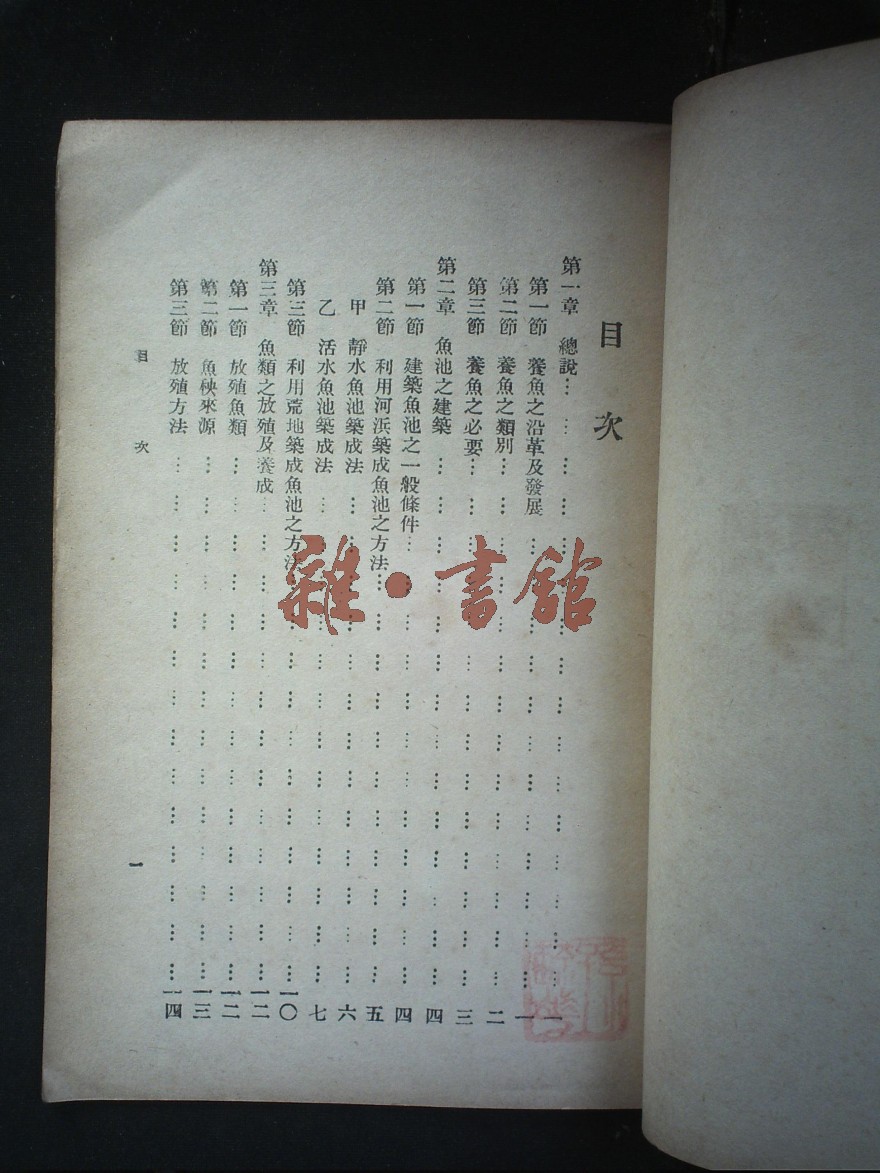 目次
第一章 總說………………一
第一節 養魚之沿革及發展………………一
第二節 養魚之類別………………二
第三節 養魚之必要………………三
第二章 魚池之建築………………四
第一節 建築魚池之一般條件………………四
第二節 利用河浜築成魚池之方法………………五
甲 靜水魚池築成法………………六
乙 活水魚池築成法………………七
第三節 利用荒地築成魚池之方法………………一〇
第三章 魚類之放殖及養成………………一二
第一節 放殖魚類………………一二
第二節 魚秧來源………………一三
第三節 放殖方法………………一四
目次
一
雜·書館